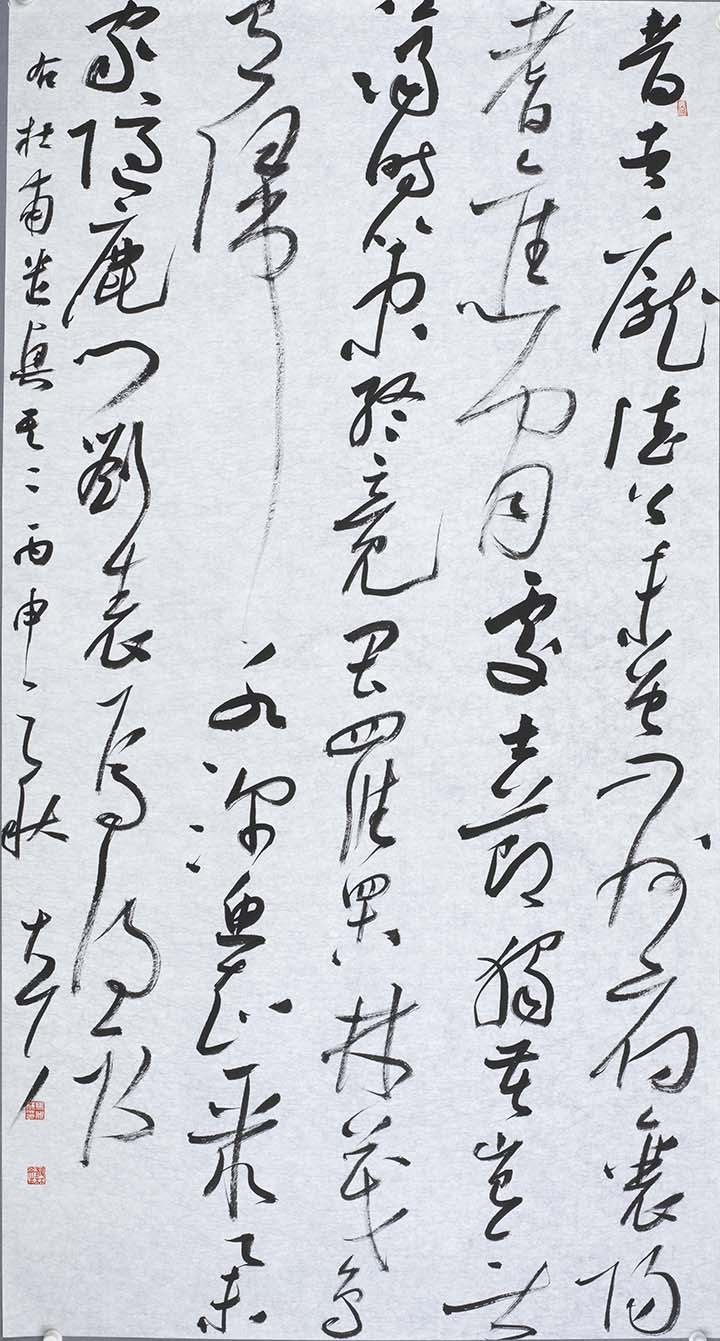 昔者龐德公未曾入州府襄陽
耆舊間處士節獨苦豈無
濟時策終竟畏羅罟林茂鳥
有歸水深魚知聚舉
家隱鹿門劉表焉得取
右杜甫遣興其二丙申之秋